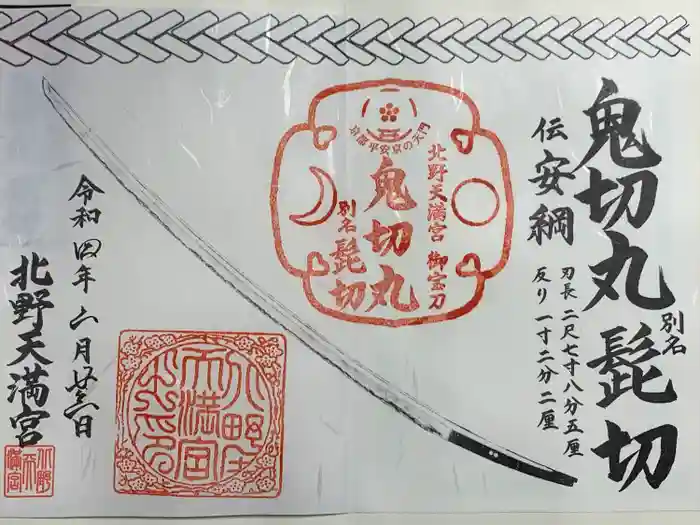 鬼切丸
別名
髭切
伝 安綱
刃長 二尺七寸八分五厘
反り 一寸二分二厘
京都平安京の天門
北野天満宮 御宝刀
鬼切丸
別名
髭切
北野天満宮
令和四年 二月 廿三日
北野天満宮